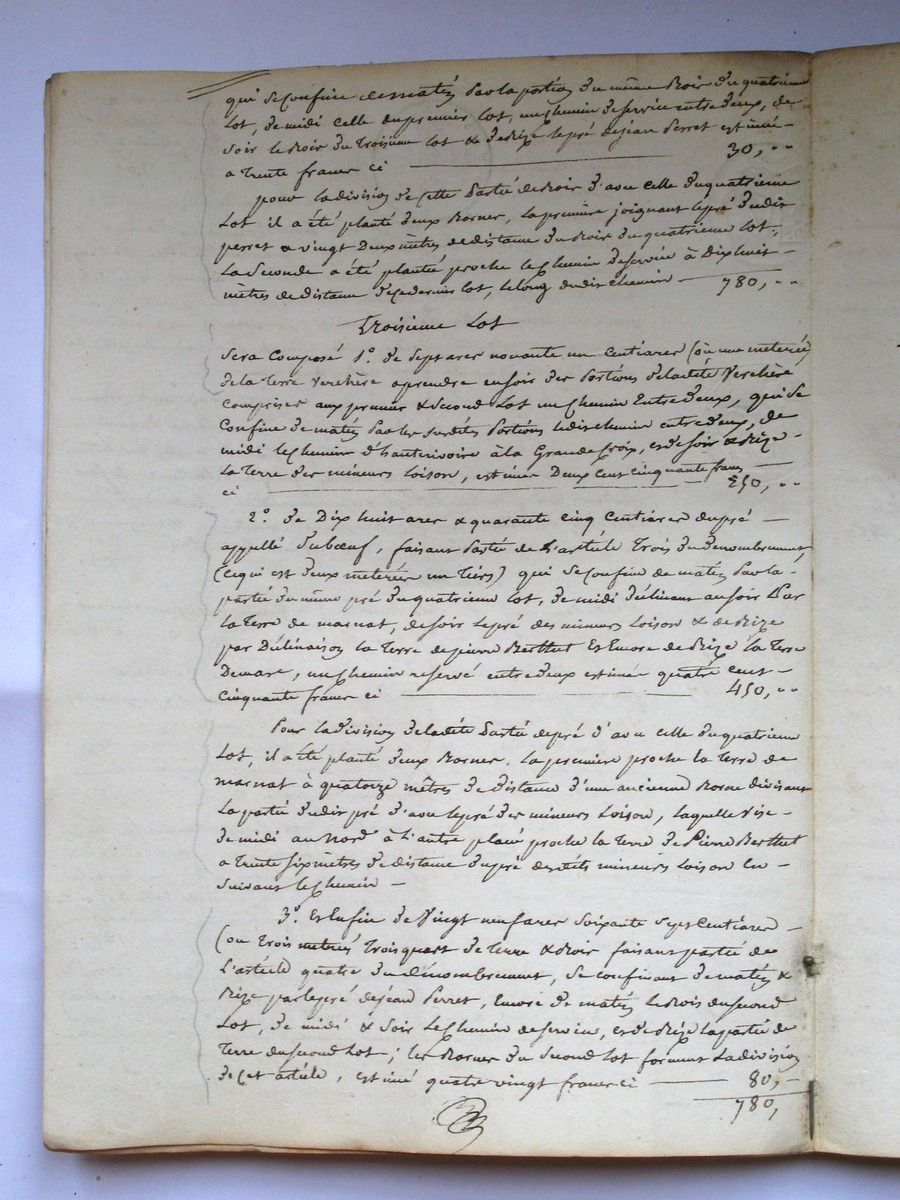 qui se confine de matin par la portion du même Bois du quatrième
Lot, de midi celle du premier lot, un chemin de service entre deux, de
soir le Bois du troisième lot & de Bize le pré de jean Perret estimée
a trente francs ci 30, " "
pour la division de cette Partie de Bois d'avec celle du quatrieme
Lot il a été planté deux Bornes, la première joignant le pré dudit
perret a vingt deux mètres de distance du Bois du quatrieme lot,
La seconde a été plantée proche le chemin de service à dix huit
mètres de distance de ce dernier lot, le long dudit chemin 780, " "
Troisieme Lot
Sera composé 1°. de sept ares nonante un centiares (ou une meterée)
de la terre verchère a prendre en soir des portions de ladite Verchère
comprises aux premier & second Lot un chemin Entre deux, qui se
confine de matin par les susdites portions ledit chemin entre deux, de
midi le chemin d'hauterivoire à la Grande croix, et de soir & Bize
La terre des mineurs Loison, estimée Deux cent cinquante francs
ci 250, " "
2°. de Dix huit ares & quarante cinq centiares du pré
appellé Duboeuf, faisant partie de L'article trois du denombrement,
(ce qui est deux meterées un tiers) qui se confine de matin par la
partie du même pré du quatrieme lot, de midi déclinant au soir Par
la terre de marnat, de soir le pré des mineurs Loison & de Bize
par Déclinaison la terre de pierre Berthet Et Encore de Bize la terre
Demare, un chemin reservé entre deux estimée quatre cent
cinquante francs ci 450, " "
Pour la division de ladite Partie de pré d'avec celle du quatrieme
Lot, il a été planté deux Bornes. La première proche la terre de
marnat à quatorze mètres de distance d'une ancienne Borne divisant
La partie dudit pré d'avec le pré des mineurs Loison, laquelle vise
de midi au Nord à L'autre placée proche la terre de Pierre Berthet
a trente six mètres de distance du pré desdits mineurs Loison En
suivant le chemin
3°. Et Enfin de Vingt neuf ares soixante sept centiares
(ou trois metrées trois quart de terre & Bois faisant partie de
L'article quatre du dénombrement, se confinant de matin &
Bize par le pré de jean Perret, Encore de matin le Bois du second
Lot, de midi & soir Le chemin de service, et de Bize la partie de
terre du second Lot ; les Bornes du second Lot forment La division
de cet article, estimé quatre vingt francs ci 80,
780,